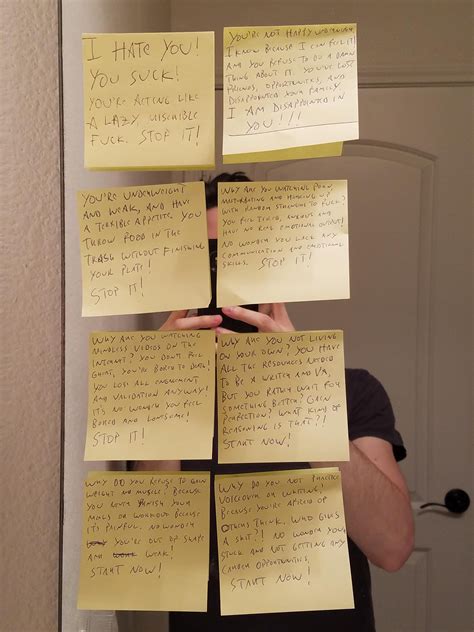 I HATE YOU!
YOU SUCK!
YOU'RE ACTING LIKE
A LAZY, MISERABLE
FUCK. STOP IT!
YOU'RE NOT HAPPY
I KNOW BECAUSE I CAN FEEL IT!
AND YOU REFUSE TO DO A DAMN
THING ABOUT IT. YOU'VE LOST
FRIENDS, OPPORTUNITIES, AND
DISAPPOINTED YOUR FAMILY.
I AM DISAPPOINTED IN
YOU!!!
YOU'RE UNDERWEIGHT
AND WEAK, AND HAVE
A TERRIBLE APPETITE. YOU
THROW FOOD IN THE
TRASH WITHOUT FINISHING
YOUR PLATE!
STOP IT!
WHY ARE YOU WATCHING PORN,
MASTURBATING AND HOOKING UP
WITH RANDOM STRANGERS TO FUCK?
YOU FEEL TIRED, ANXIOUS AND
HAVE NO REAL EMOTIONAL
NO WONDER YOU LACK ANY
COMMUNICATION AND EMOTIONAL
SKILLS. STOP IT!
WHY ARE YOU WATCHING
MINDLESS VIDEOS ON THE
INTERNET? YOU DON'T FEEL
GOOD, YOU'RE BORED TO DEATH!
YOU LOSE ALL
AND VALIDATION ANYWAY!
IT'S NO WONDER YOU FEEL
BORED AND LONESOME!
STOP IT!
WHY ARE YOU NOT LIVING
ON YOUR OWN? YOU HAVE
ALL THE RESOURCES NEEDED
TO BE A WRITER AND VA,
BUT YOU RATHER WAIT FOR
SOMETHING BETTER? GAIN
PERFECTION? WHAT KIND OF
REASONING IS THAT?!
START NOW!
WHY DO YOU REFUSE TO GAIN
WEIGHT AND MUSCLE? BECAUSE
YOU NEVER FINISH YOUR
MEALS OR WORKOUT BECAUSE
IT'S PAINFUL. NO WONDER
YOU'RE OUT OF SHAPE
AND WEAK!
START NOW!
WHY DO YOU NOT PRACTICE
VOICEOVER OR WRITING?
BECAUSE YOU'RE AFRAID OF
OTHERS THINK. WHO GIVES
A SHIT?! NO WONDER YOU'RE
STUCK AND NOT GETTING ANY
CAREER OPPORTUNITIES.
START NOW!